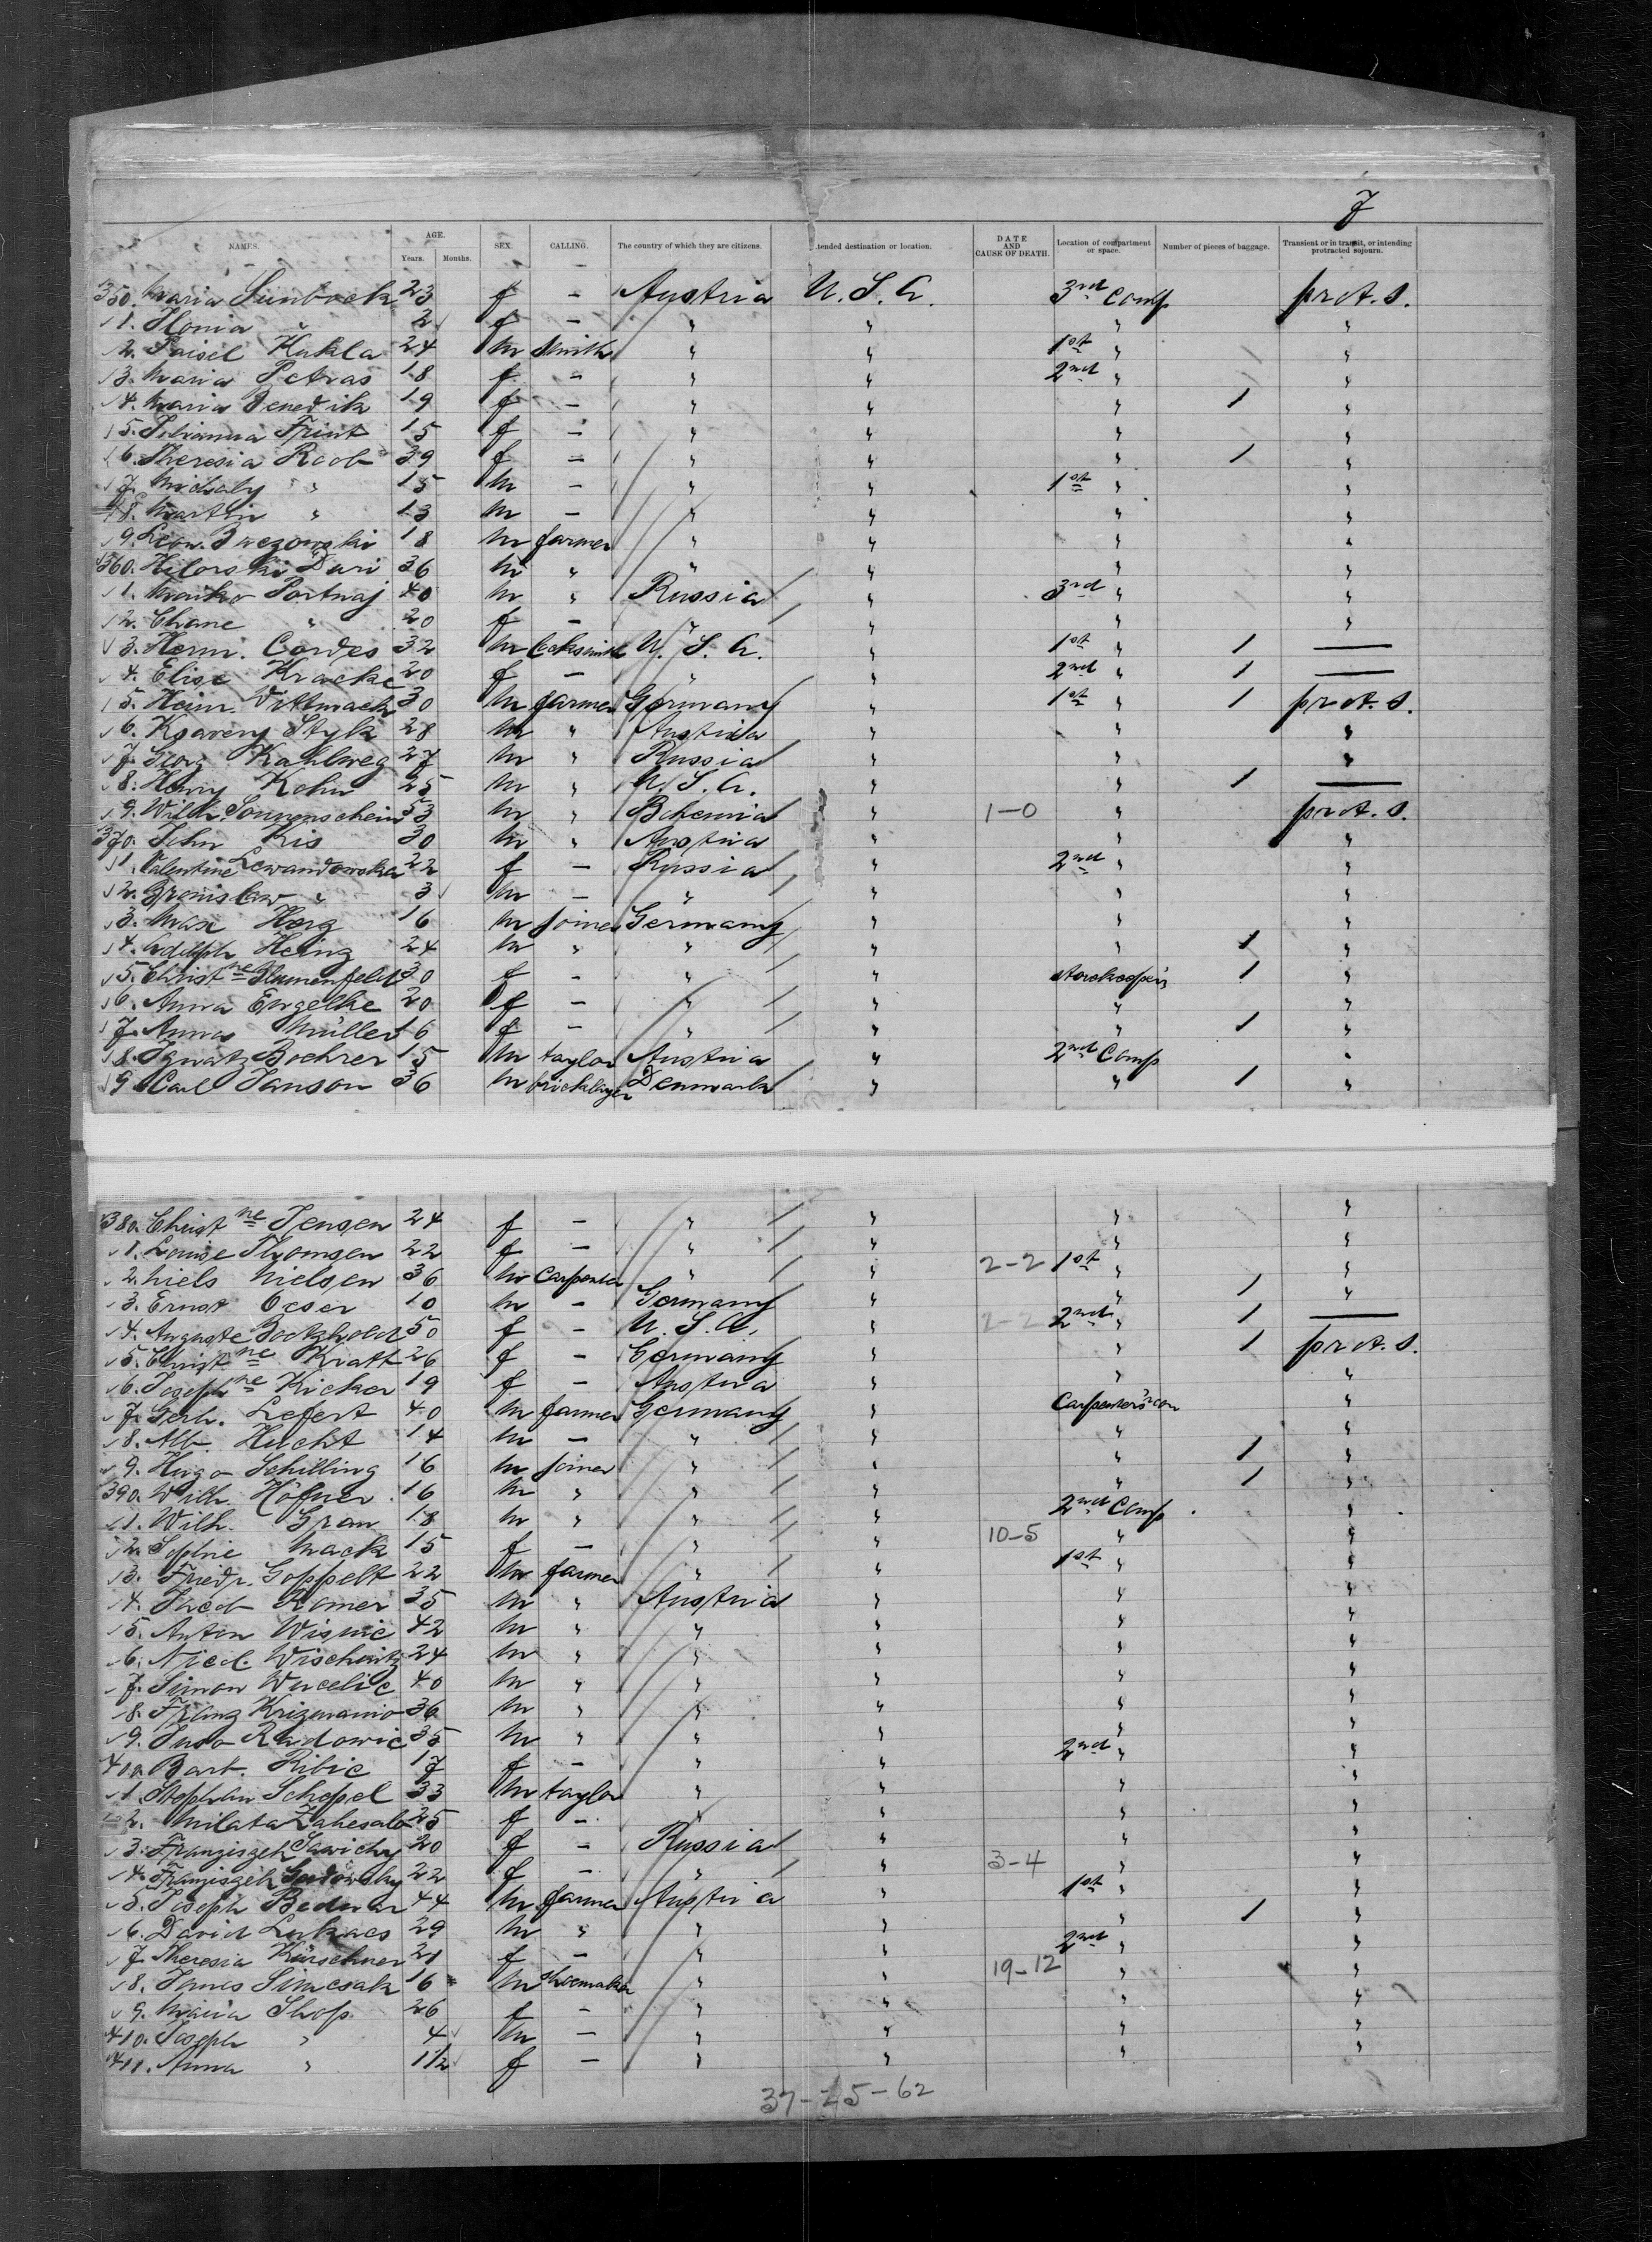 7
NAMES. AGE. Years. Months. SEX. CALLING. The country of which they are citizens. tended destination or location. DATE AND CAUSE OF DEATH. Location of compartment or space. Number of pieces of baggage. Transient or in transit, or intending protracted sojourn.
350. Maria Sunbock 23 f - Austria U.S.A. 3rd Comp prot. s.
1. Ilonia " 2 f - " " " "
2. Paisel Kukla 24 m smith " " 1st " "
3. Maria Petras 18 f - " " 2nd " "
4. Maria Benedik 19 f - " " " 1 "
5. Julianna Frint 15 f - " " " "
6. Theresia Roob 39 f - " " " 1 "
7. Michaly " 15 m - " " 1st " "
8. Martin " 13 m - " " " "
9. Leon. 18 m farmer " " " "
360. Hilorski Duri 36 m " " " " "
1. Marko Portnaj 40 m " Russia " 3rd " "
2. Chane " 20 f - " " " "
3. Herm. Cordes 32 m locksmith U.S.A. " 1st " 1 —
4. Elise Kracke 20 f - " " 2nd " 1 —
5. Heinr. Wittmack 30 m farmer Germany " 1st " 1 prot. s.
6. Ksaveny Styk 28 m " Austria " " "
7. Georg Kahlweg 27 m " Russia " " "
8. Henry Kohn 25 m " U.S.A. " " 1 —
9. Wilh. Sonnenschein 53 m " Bohemia " 1-0 " prot. s.
370. John Kis 30 m " Austria " " "
1. Valentine Lewandowska 22 f - Russia " 2nd " "
2. Bronislaw " 3 m - " " " "
3. Max Herz 16 m joiner Germany " " "
4. Adolph Heinz 24 m " " " " 1 "
5. Christne Blumenfeld 30 f - " " storekeeper's 1 "
6. Anna Engelke 20 f - " " " "
7. Anna Müller 16 f - " " " 1 "
8. Ignatz Boehrer 15 m taylor Austria " 2nd Comp "
9. Carl Janson 36 m bricklayer Denmark " " 1 "
380. Christne Jensen 24 f - " " " "
1. Louise Thomsen 22 f - " " " "
2. Niels Nielsen 36 m carpenter " " 2-2 1st " "
3. Ernst Oeser 10 m - Germany " " 1 "
4. Auguste Bockhold 50 f - U.S.A. " 2-2 2nd " 1 —
5. Christne Kratt 26 f - Germany " " 1 prot. s.
6. Josephne Kicker 19 f - Austria " " "
7. Gerh. Lefert 40 m farmer Germany " Carpenter's "
8. Alb. Hucht 14 m - " " " "
9. Hugo Schilling 16 m joiner " " " 1 "
390. Wilh. Höfner 16 m " " " " 1 "
1. Wilh. Gran 18 m " " " 2nd Comp "
2. Sophie Mack 15 f - " " 10-5 " "
3. Friedr. Goppelt 22 m farmer " " 1st " "
4. Romer 35 m " Austria " " "
5. Anton Wisnic 42 m " " " " "
6. Nicol. Wischnitz 24 m " " " " "
7. Simon Wucelic 40 m " " " " "
8. Franz Krizmanic 36 m " " " " "
9. Juso Radowic 35 m " " " " "
400. Bart. Ribic 17 f - " " 2nd " "
1. Stephan Schepel 33 m taylor " " " "
2. Milata 25 f - " " " "
3. Franziszek Sawicky 20 f - Russia " " "
4. Franziszek 22 f - " " 3-4 " "
5. Joseph Bednar 44 m farmer Austria " 1st " "
6. David Lukacs 29 m " " " " 1 "
7. Theresia Kürschner 21 f - " " 2nd " "
8. Janos Simcsak 16 m shoemaker " " 19-12 " "
9. Maria Shop 26 f - " " " "
410. Joseph " 4 m - " " " "
411. Anna " 1½ f - " " " "
37-25-62